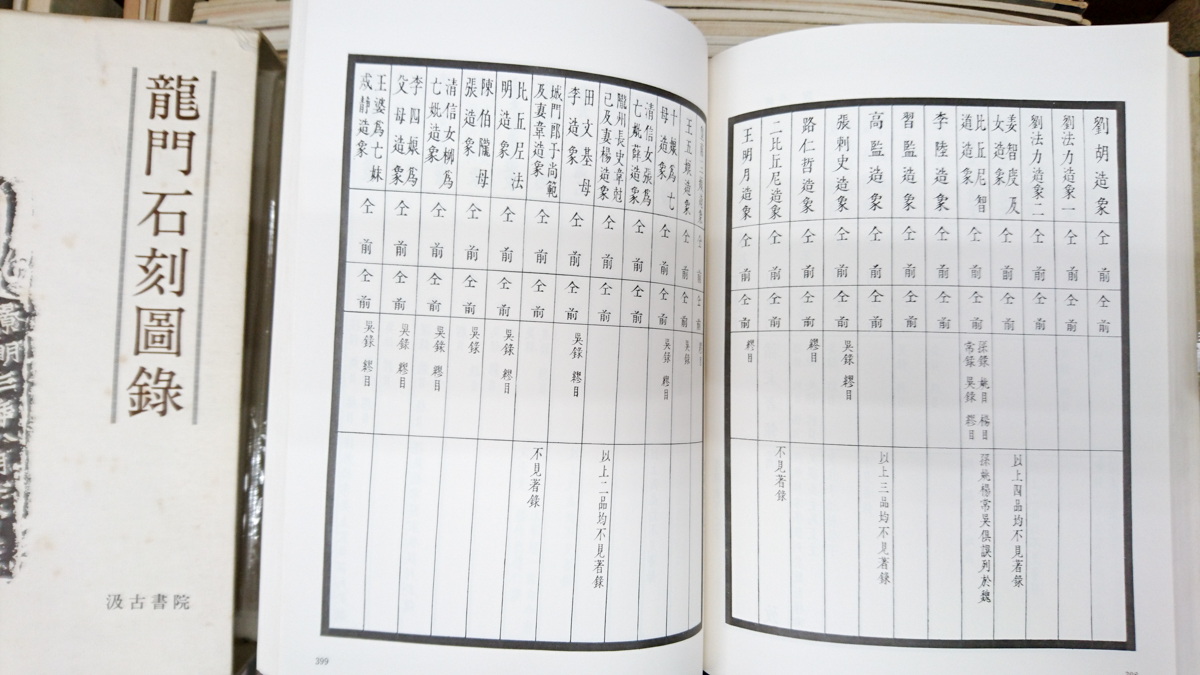 龍門石刻圖錄
汲古書院
劉胡造象 仝前 仝前
劉法力造象一 仝前 仝前
劉法力造象二 仝前 仝前
姜智度及女造象 仝前 仝前 以上四品均不見著錄
比丘尼智道造象 仝前 仝前 孫錄 姚目 楊目 常錄 吳錄 繆目 孫姚楊常吳俱誤列於魏
李陸造象 仝前 仝前
習監造象 仝前 仝前
高監造象 仝前 仝前 以上三品均不見著錄
張刺史造象 仝前 仝前 吳錄 繆目
路仁哲造象 仝前 仝前 繆目
二比丘尼造象 仝前 仝前 不見著錄
王明月造象 仝前 仝前 繆目
王五娘造象 仝前 仝前 吳錄
十娘為七母造象 仝前 仝前 吳錄 繆目
清信女張為亡妣薛造象 仝前 仝前
隴州長史韋尅己及妻楊造象 仝前 仝前 以上二品均不見著錄
田文基母李造象 仝前 仝前 吳錄 繆目
城門郎于尚範及妻韋造象 仝前 仝前 不見著錄
比丘尼法明造象 仝前 仝前 吳錄 繆目
陳伯隴母張造象 仝前 仝前 吳錄
清信女柳為亡妣造象 仝前 仝前 吳錄 繆目
李四娘為父母造象 仝前 仝前 吳錄 繆目
王婆為亡妹成靜造象 仝前 仝前 吳錄 繆目
399